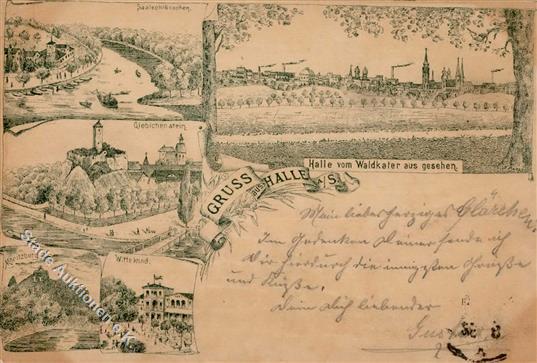 Saalschlösschen.
Giebichenstein.
Halle vom Waldkater aus gesehen.
GRUSS
aus HALLE a/S.
Moritzburg
Wittekind.
Mein lieber herziges Clärchen.
Im Gedenken Deiner sende ich
Dir hierdurch die innigsten Grüße
und Küsse.
Dein Dich liebender